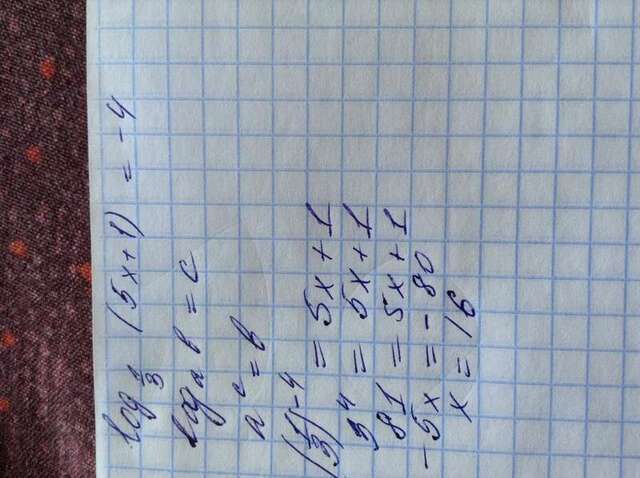 log 1/3 (5x+1) = -4
log a b = c
a^c = b
(1/3)^-4 = 5x+1
3^4 = 5x+1
81 = 5x+1
-5x = -80
x = 16